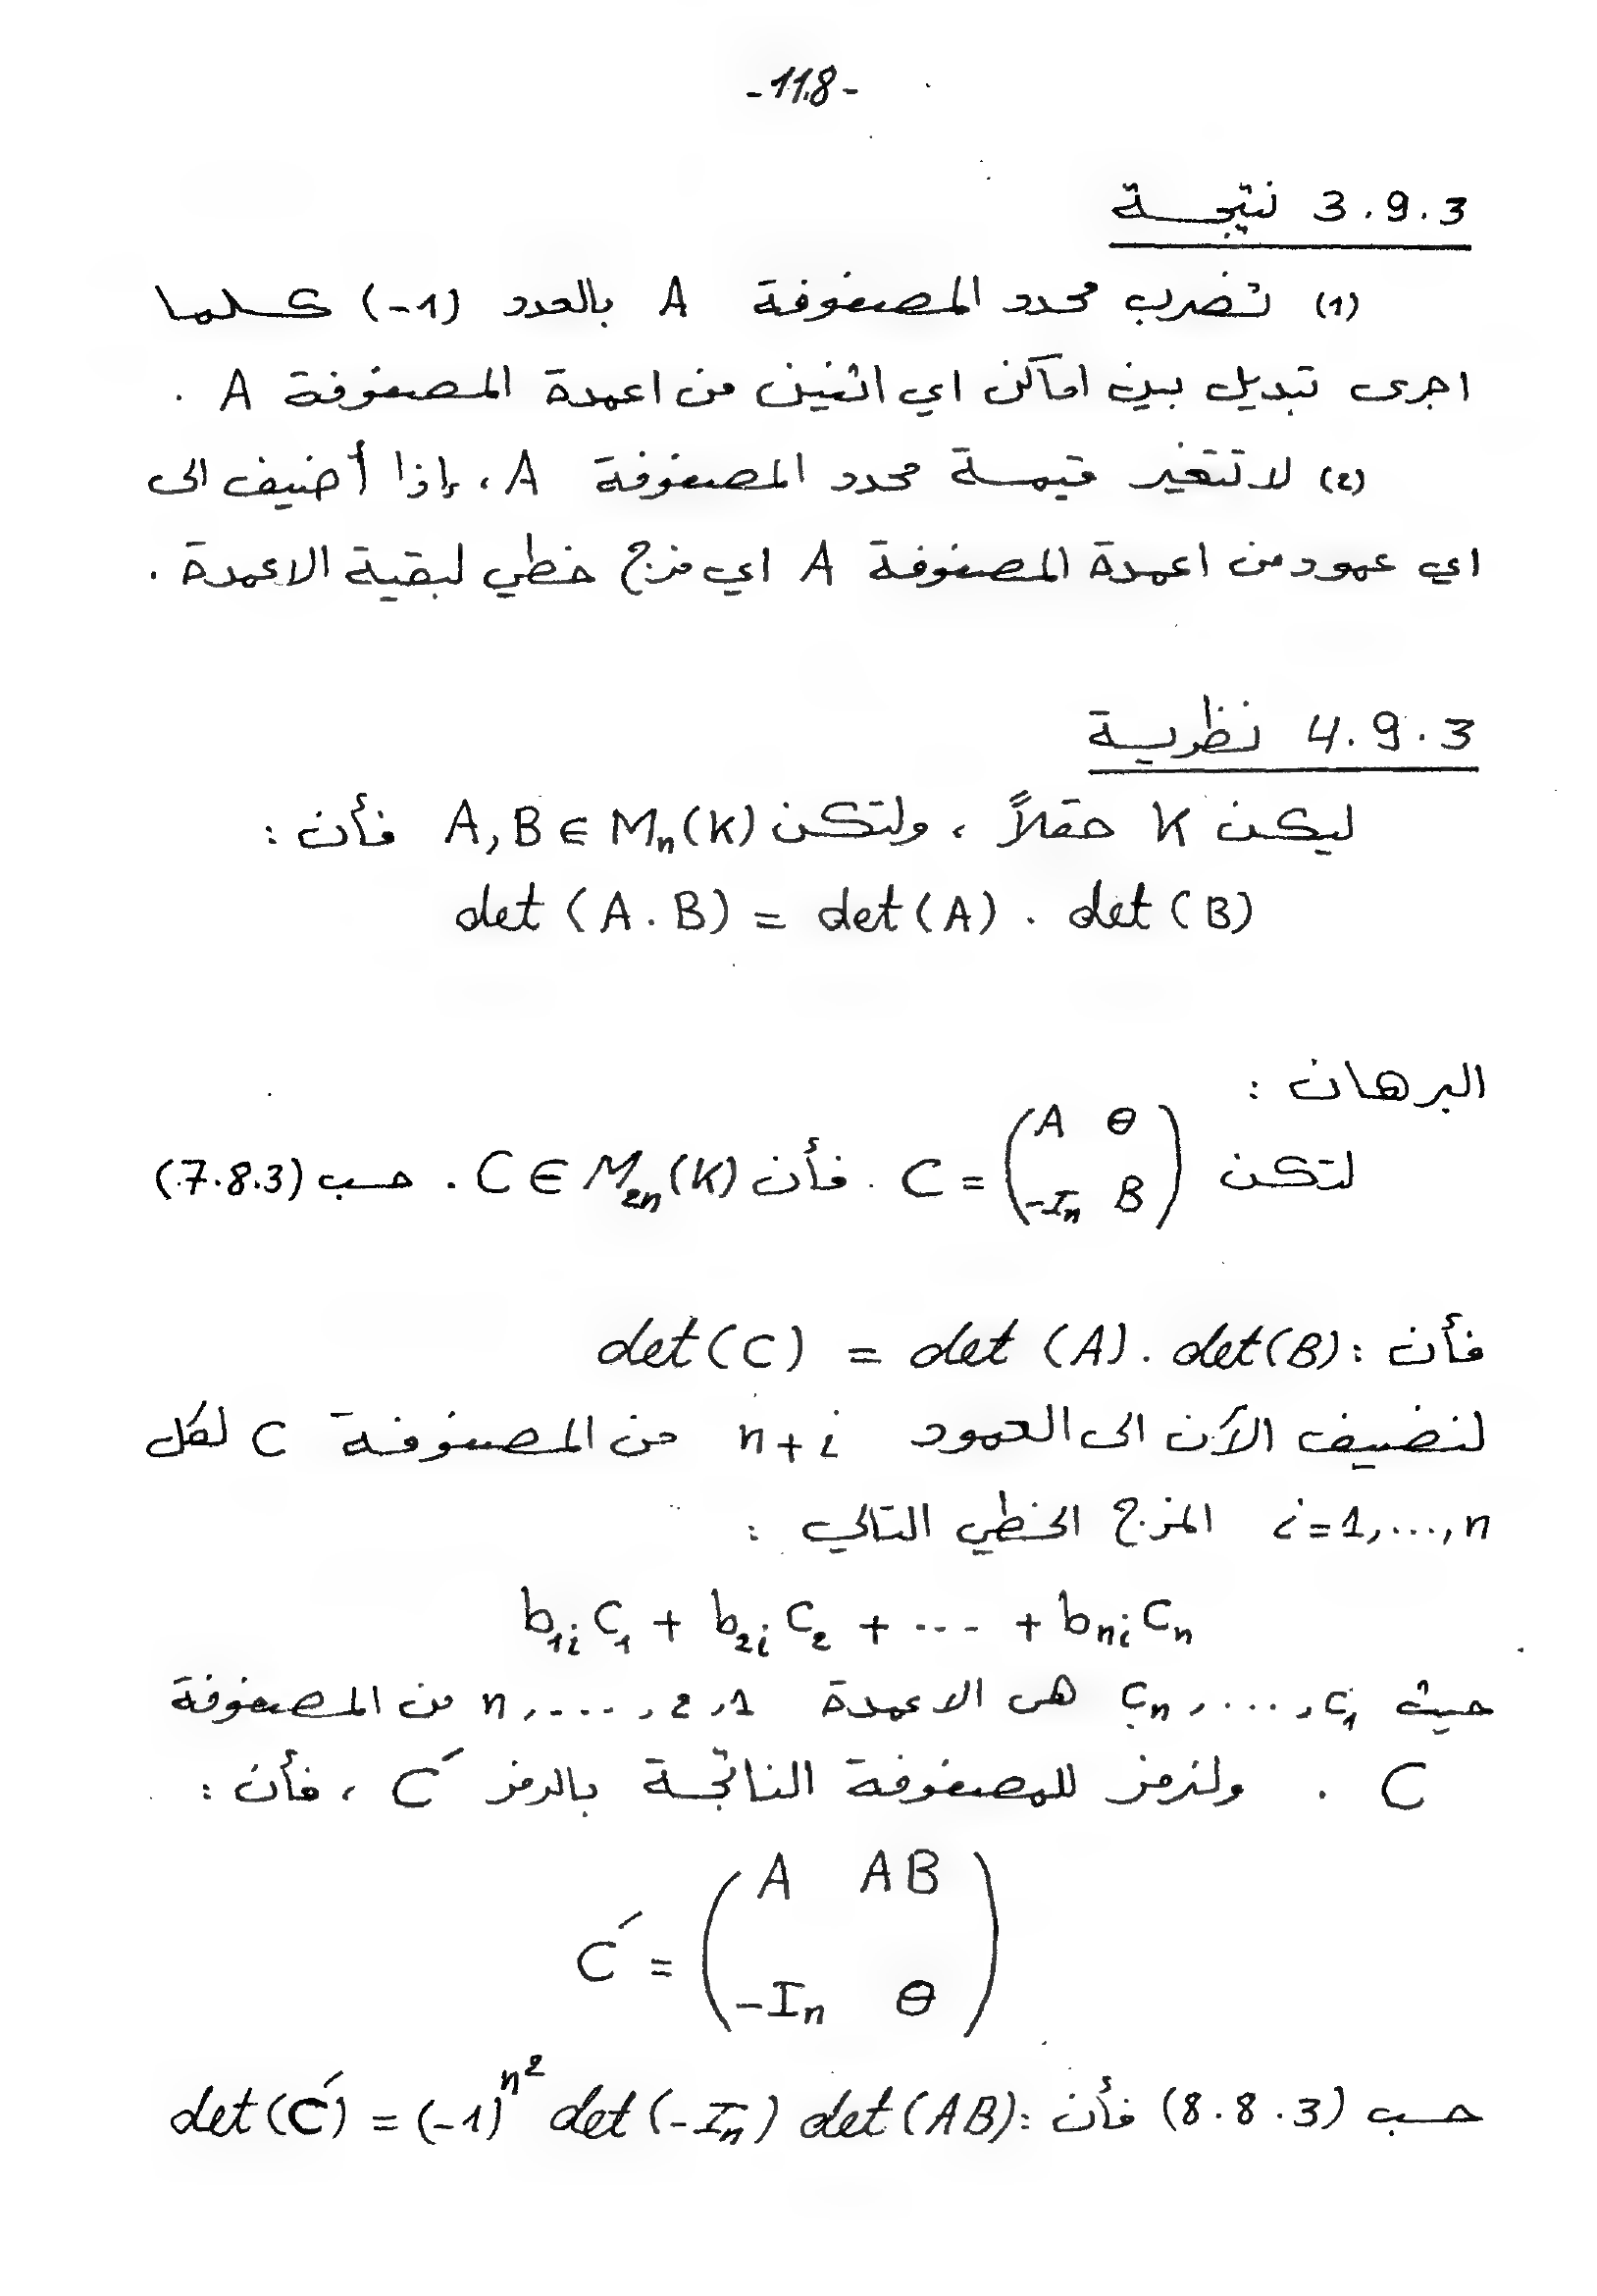 -118-
3.9.3 نتيجـــة
(1) تضرب محدد المصفوفة A بالعدد (-1) كلما
اجرى تبديل بين اماكن اي اثنين من اعمدة المصفوفة A .
(2) لا تتغير قيمة محدد المصفوفة A ، إذا أضيف الى
اي عمود من اعمدة المصفوفة A اي مزج خطي لبقية الاعمدة .
4.9.3 نظرية
ليكن K حقلاً ، ولتكن A, B ∈ Mₙ(K) فأن :
det (A . B) = det (A) . det (B)
البرهان :
لتكن C = \begin{pmatrix} A & θ \\ -Iₙ & B \end{pmatrix} . فأن C ∈ M₂ₙ(K) . حسب (7.8.3)
فأن : det (C) = det (A) . det (B)
لنضيف الآن الى العمود n+i من المصفوفة C لكل
i=1,...,n المزج الخطي التالي :
b₁ᵢ C₁ + b₂ᵢ C₂ + --- + bₙᵢ Cₙ
حيث C₁ ,...., Cₙ هى الاعمدة 1, 2, ...., n من المصفوفة
C . ولنرمز للمصفوفة الناتجة بالرمز C′ ، فأن :
C′ = \begin{pmatrix} A & AB \\ -Iₙ & θ \end{pmatrix}
حسب (8.8.3) فأن : det (C′) = (-1)^{n²} det (-Iₙ) det (AB)